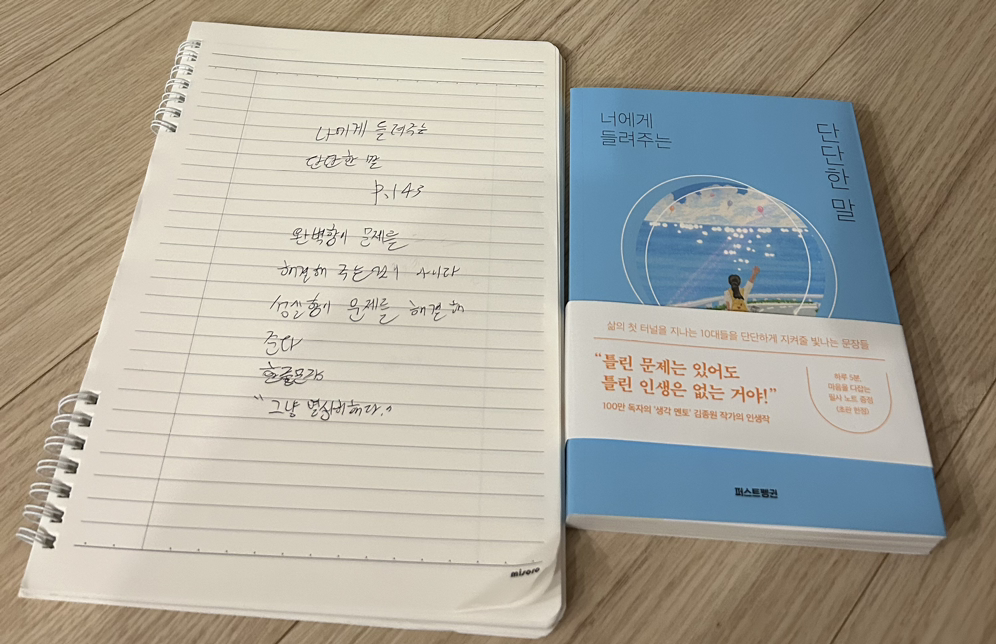 나에게 들려주는
단단한 말
P.143
완벽함이 문제를
해결해 주는 것이 아니다
성실함이 문제를 해결해
준다
"그냥 열심히 해라."
misoro
너에게
들려주는
단단한 말
삶의 첫 터널을 지나는 10대들을 단단하게 지켜줄 빛나는 문장들
"틀린 문제는 있어도
틀린 인생은 없는 거야!"
100만 독자의 '생각 멘토' 김종원 작가의 인생작
하루 5분,
마음을 다잡는
필사 노트 증정
(초판 한정)
퍼스트펭귄